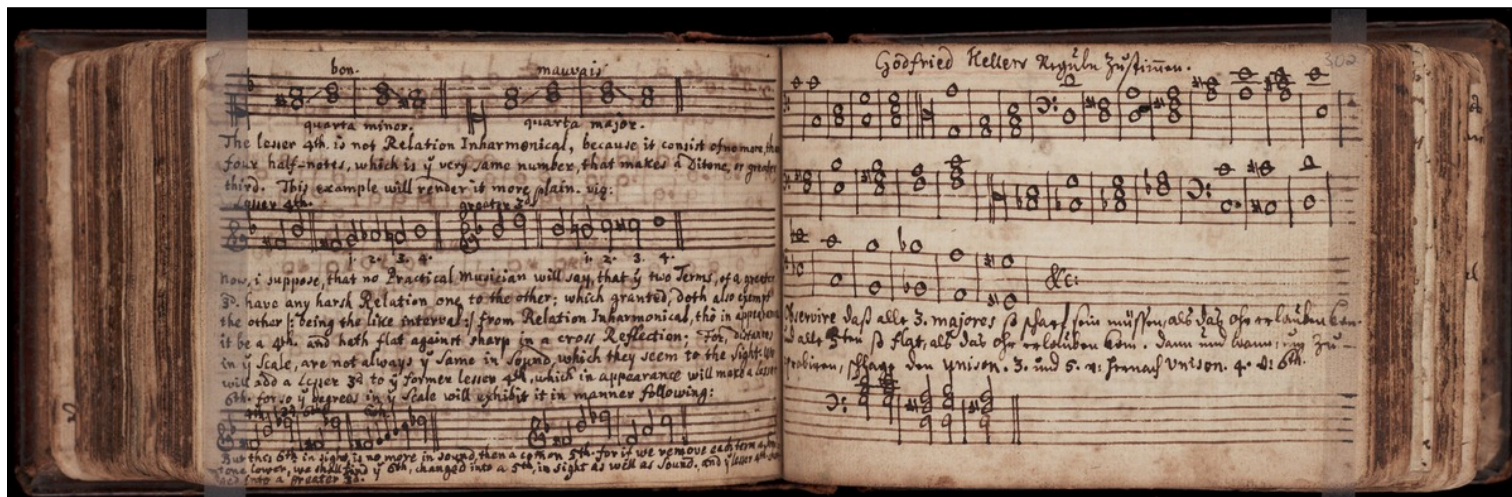 bon. mauvais
quarta minor. quarta major.
The lesser 4th. is not Relation Inharmonical, because it consist of no more, then
four half-notes, which is ÿ very same number, that makes a Ditone, or greater
third. This example will render it more plain. viz:
Lesser 4th. greater 3d.
1. 2. 3. 4. 1. 2. 3. 4.
Now, i suppose, that no Practical Musician will say, that ÿ two Terms, of a greater
3d. have any harsh Relation one to the other; which granted, doth also exempt
the other |: being the like interval :| from Relation Inharmonical, thô in appearance
it be a 4th. and hath flat against sharp in a cross Reflection: For, distances
in ÿ Scale, are not always ÿ same in Sound, which they seem to the sight: We
will add a Lesser 3d to ÿ former lesser 4th, which in appearance will make a lesser
6th. for so ÿ degrees in ÿ Scale will exhibit it in manner following:
4th. 3d. 6th. 6th.
But this 6th in sight, is no more in sound, then a comon 5th. for if we remove each term a
tone lower, we shall find ÿ 6th, changed into a 5th, in sight as well as sound. and ÿ lesser 4th
into a greater 3d.
Godfried Kellers Reguln zu stim̄en.
302
&c:
Observire daß alle 3. majores so scharf sein müssen, als das ohr erlauben kan.
alle 5ten so flat, als das ohr erlauben kan. dann und wann, um zu-
probiren, schlage den unison. 3. und 5. hernach unison. 4. 6th.